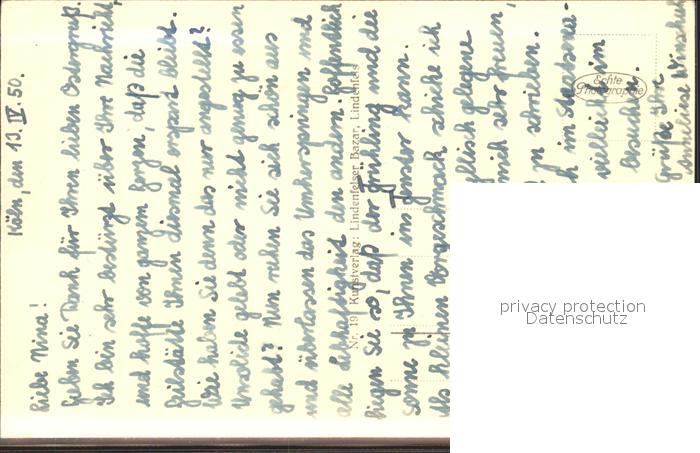 Köln, den 13. IV. 50.
Liebe Nina!
Haben Sie Dank für Ihren lieben Ostergruß.
Ich bin sehr bestürzt über Ihre Nachricht,
und hoffe von ganzem Herzen, daß die
Heilstätte Ihnen diesmal erspart bleibt.
Wie haben Sie denn das nur angestellt?
Unsolide gelebt oder nicht genug zu essen
gehabt? Nun ruhen Sie sich schön aus
und überlassen das Umherspringen und
alle Lebhaftigkeit den andern. Hoffentlich
liegen Sie so, daß der Frühling und die
Sonne zu Ihnen ins Fenster kann.
Als kleinen Vorgeschmack schicke ich
gelegene
mich sehr freuen,
zu schreiben.
h im
vielleicht
besuchen.
Grüße Ihre
Nr. 19 Kunstverlag: Lindenfelser Bazar, Lindenfels
Echte
Photographie
privacy protection
Datenschutz